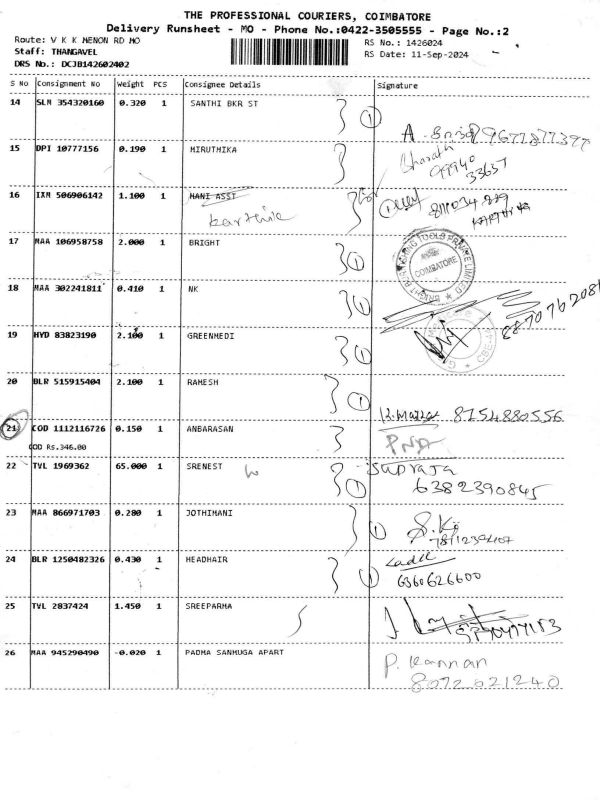 THE PROFESSIONAL COURIERS, COIMBATORE
Delivery Runsheet - MO - Phone No.:0422-3505555 - Page No.:2
Route: V K K MENON RD MO
RS No.: 1426024
Staff: THANGAVEL
RS Date: 11-Sep-2024
DRS No.: DCJB142602402
S No Consignment No Weight PCS Consignee Details Signature
14 SLM 354320160 0.320 1 SANTHI BKR ST 1
A 9677877397
15 DPI 10777156 0.190 1 HIRUTHIKA Bharath
99940
33637
16 IXM 506906142 1.100 1 HANI ASST
karthik
17 MAA 106958758 2.000 1 BRIGHT 1
COIMBATORE
18 MAA 302241811 0.410 1 NK 1
8870762081
19 HYD 83823190 2.100 1 GREENMEDI 1
20 BLR 515915404 2.100 1 RAMESH 1
8754880556
21 COD 1112116726 0.150 1 ANBARASAN
COD Rs.346.00
22 TVL 1969362 65.000 1 SRENEST 1
Supraja
6382390845
23 MAA 866971703 0.280 1 JOTHIMANI 1
24 BLR 1250482326 0.430 1 HEADHAIR 1
6360626600
25 TVL 2837424 1.450 1 SREEPARMA
26 MAA 945290490 -0.020 1 PADMA SANMUGA APART
P. Kannan
8072021240